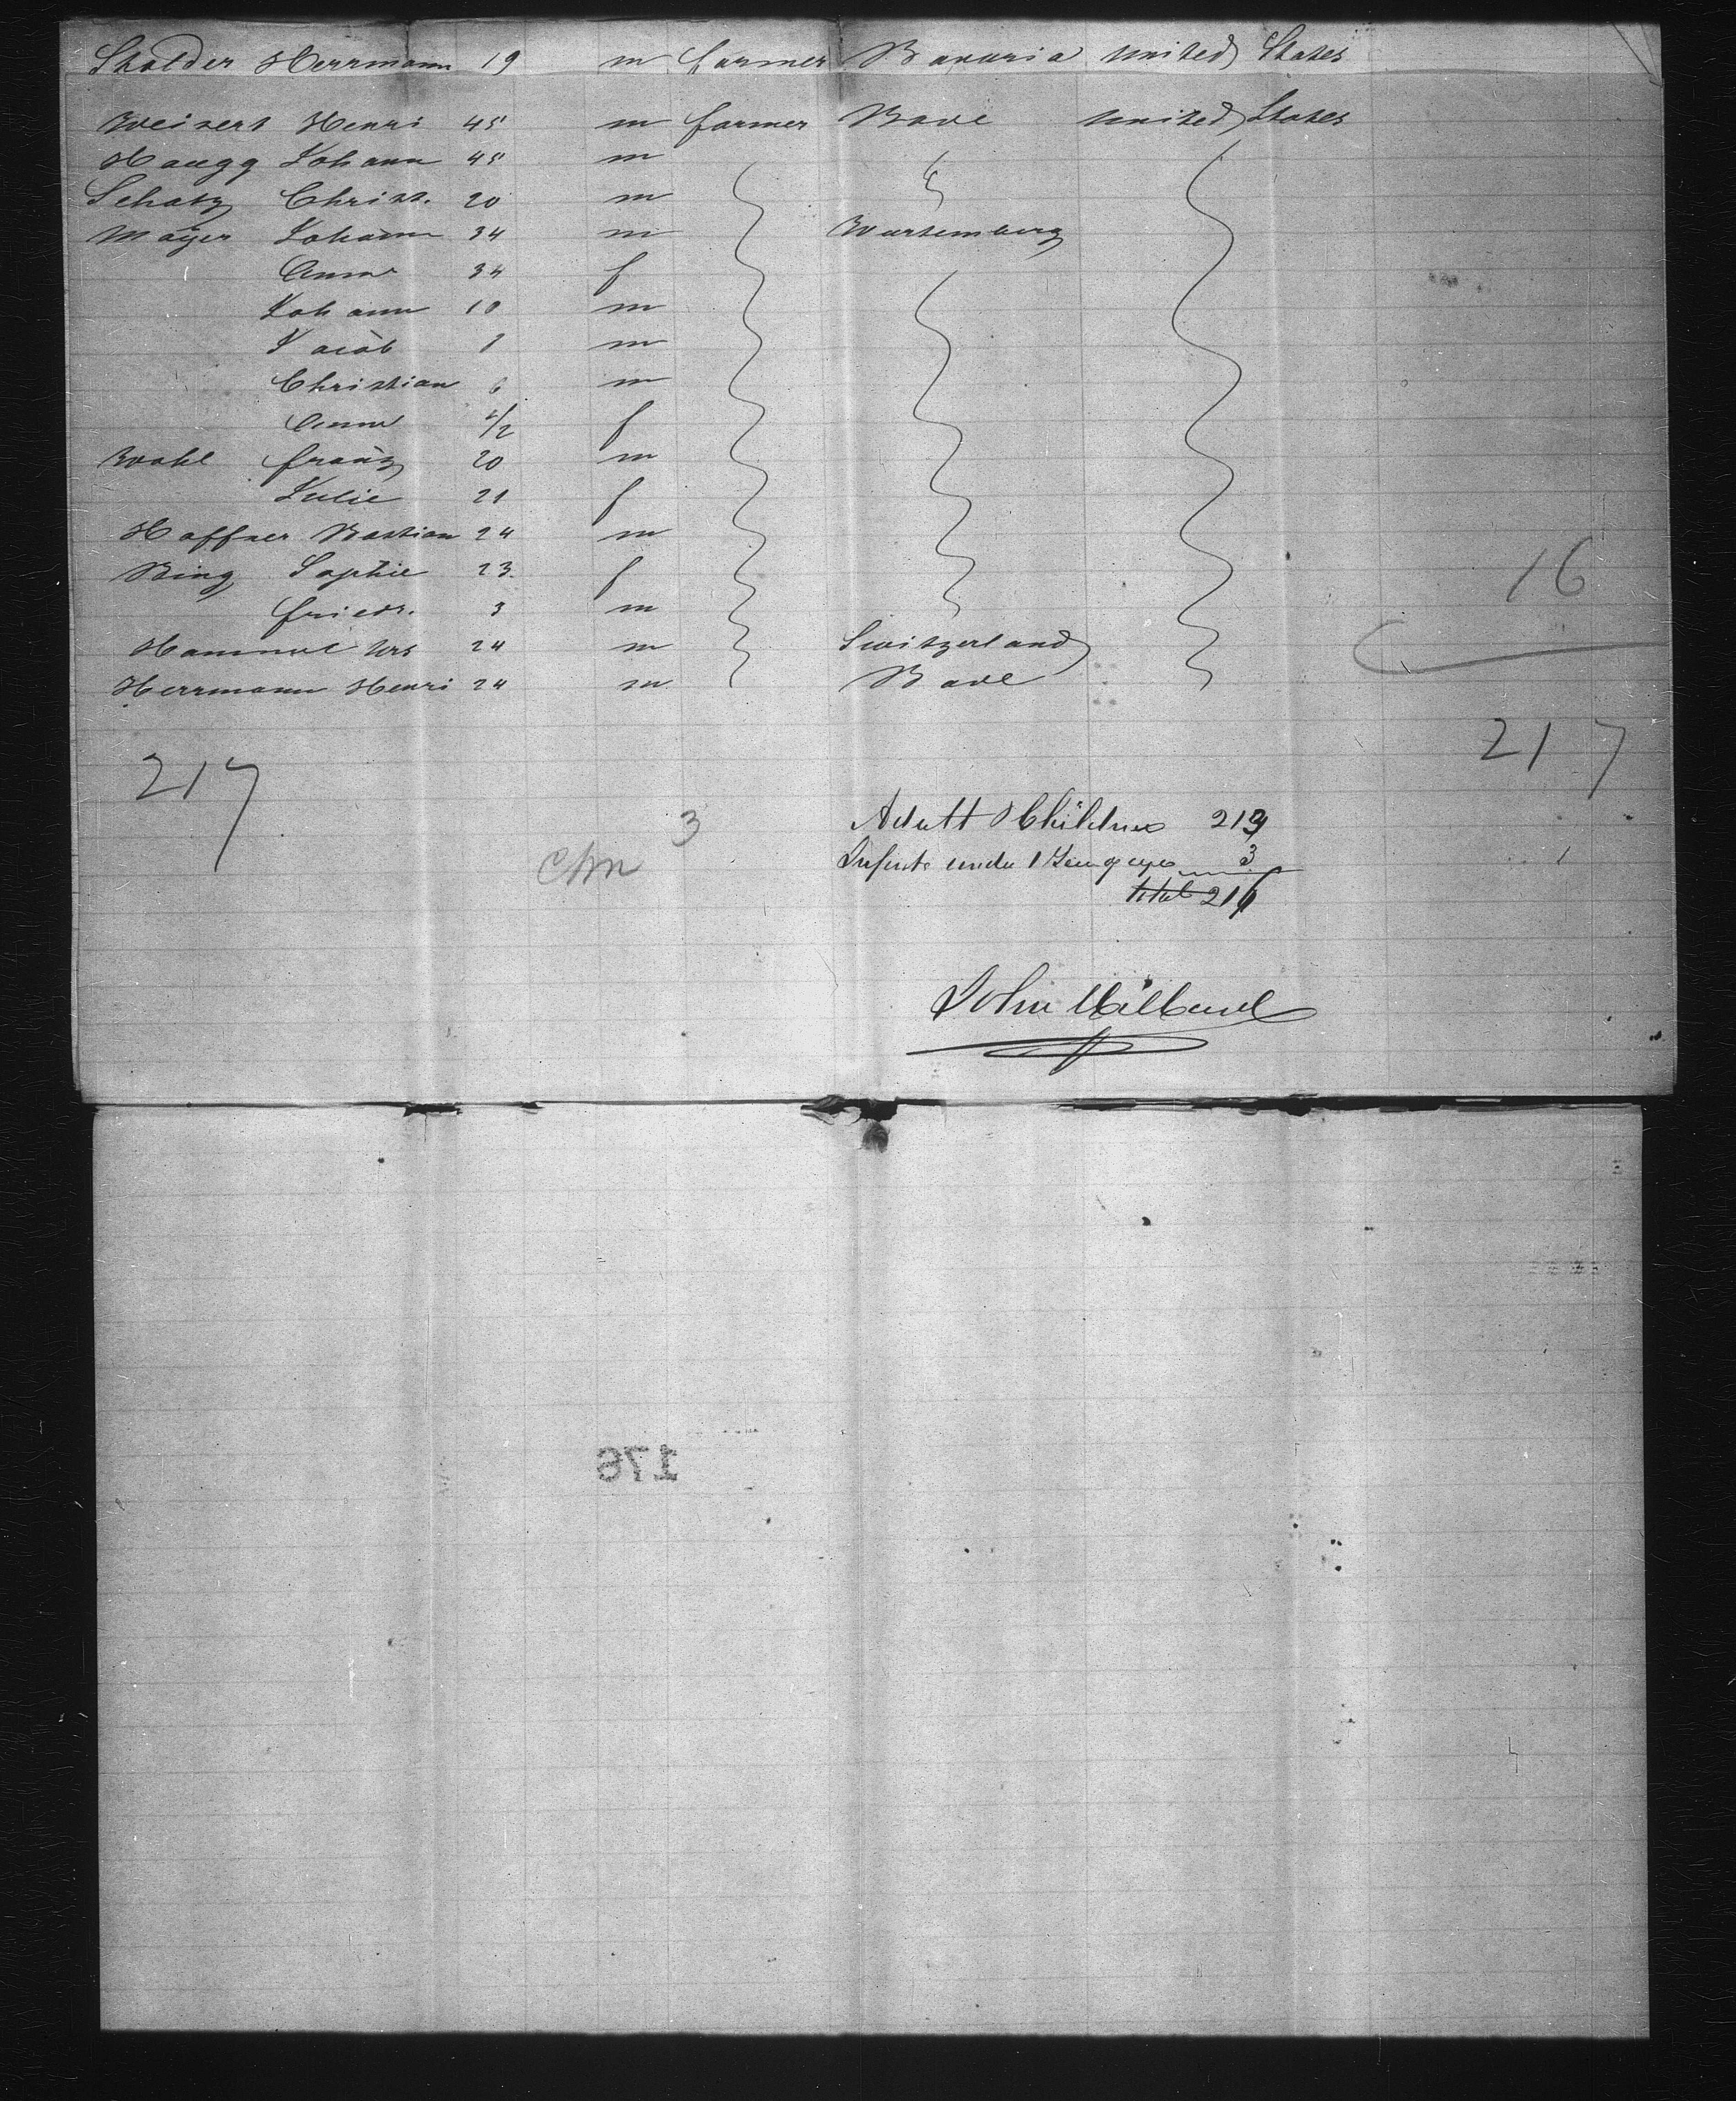 Sholder Herrmann 19 m farmer Bavaria United States
Weizert Henri 45 m farmer Bade United States
Haugg Johann 45 m
Schatz Christ. 20 m
Mayer Johann 34 m Wurtemberg
Anna 34 f
Johann 10 m
Jacob 8 m
Christian 6 m
Anna 1/2 f
Wahl Franz 20 m
Julie 21 f
Haffner Bastian 24 m
Bing Sophie 23 f
Friedr. 3 m
Hammel Urs 24 m Switzerland
Herrmann Henri 24 m Bade
16
217
217
Adult & Children 213
3
Infants under 1 Year of age 3
1
total 216
John
176